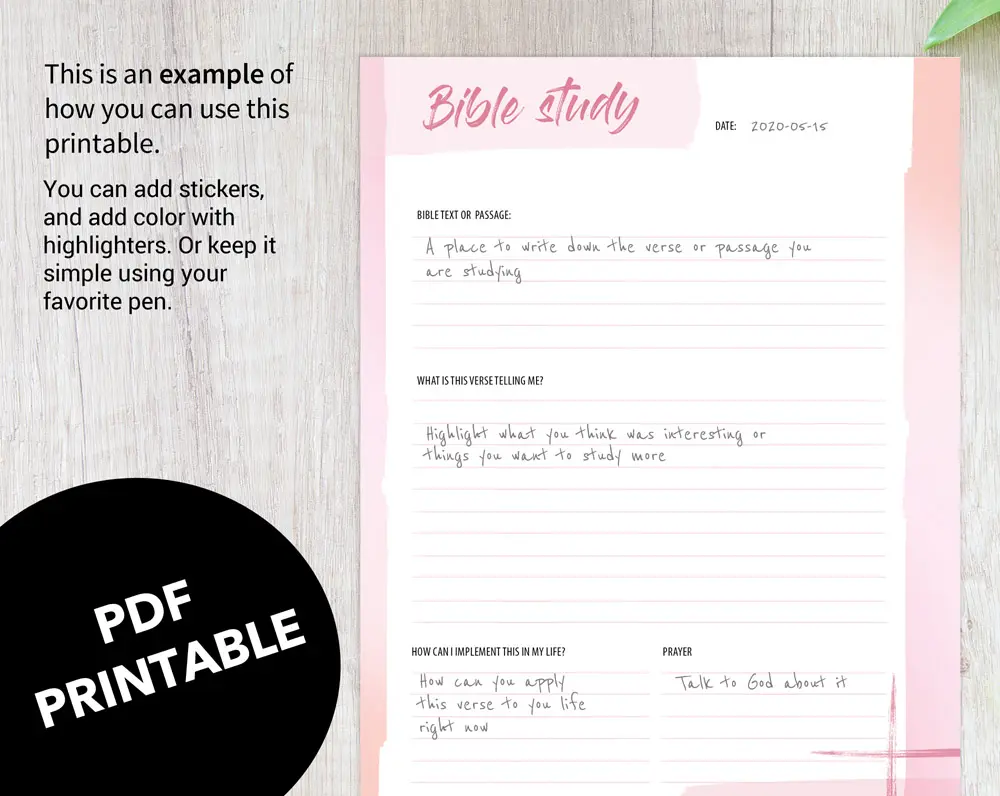 This is an example of
how you can use this
printable.
You can add stickers,
and add color with
highlighters. Or keep it
simple using your
favorite pen.
PDF
PRINTABLE
Bible study
DATE: 2020-05-15
BIBLE TEXT OR PASSAGE:
A place to write down the verse or passage you
are studying
WHAT IS THIS VERSE TELLING ME?
Highlight what you think was interesting or
things you want to study more
HOW CAN I IMPLEMENT THIS IN MY LIFE?
How can you apply
this verse to you life
right now
PRAYER
Talk to God about it